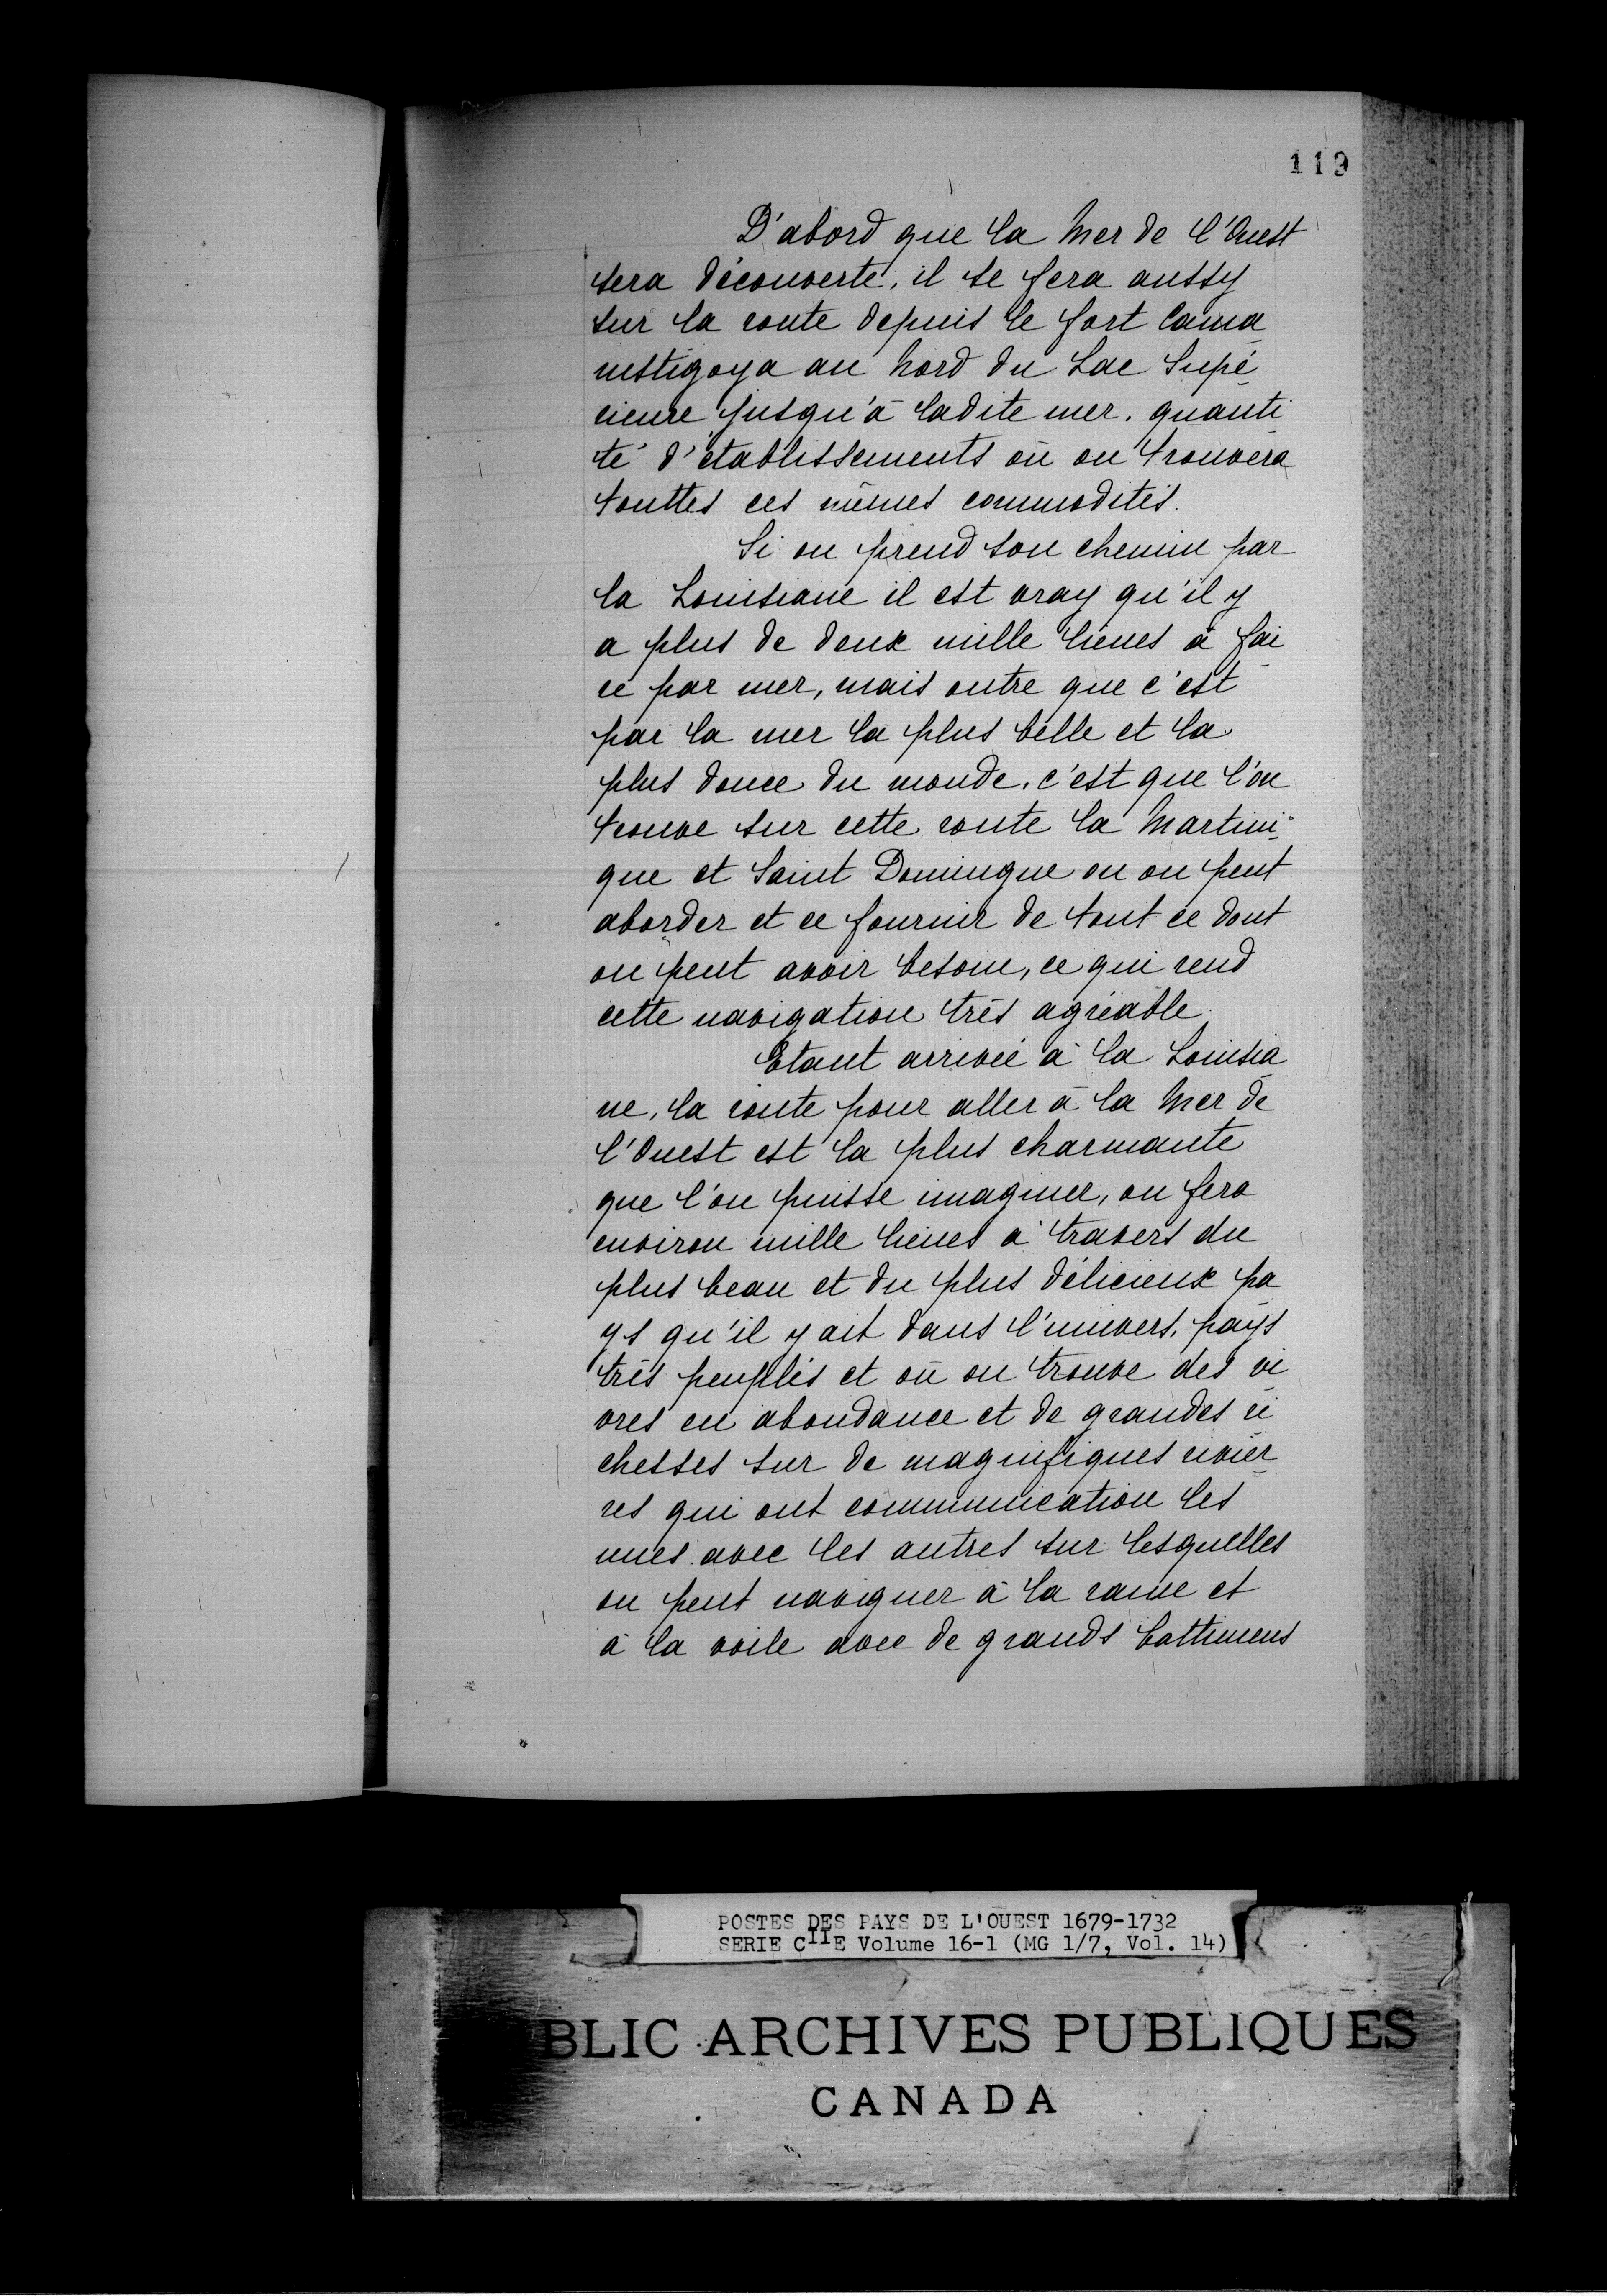 119
D'abord que la Mer de l'Ouest
sera découverte, il se fera aussy
sur la route depuis le fort Cama
nestigoya au Nord du Lac Supé
rieure jusqu'à ladite mer, quanti
té d'établissements où on trouvera
touttes ces mêmes commodités.
Si on prend son chemin par
la Louisiane il est vray qu'il y
a plus de deux mille lieues à fai
re par mer, mais outre que c'est
par la mer la plus belle et la
plus douce du monde, c'est que l'on
trouve sur cette route la Martini-
que et Saint Domingue ou on peut
aborder et ce fournir de tout ce dont
on peut avoir besoin, ce qui rend
cette navigation très agréable.
Etant arrivée à la Louisia
ne, la route pour aller à la Mer de
l'Ouest est la plus charmante
que l'on puisse imaginer, on fera
environ mille lieues à travers du
plus beau et du plus délicieux pa
ys qu'il y ait dans l'univers, pays
très peuplés et où on trouve des vi
vres en abondance et de grandes ri
chesses sur de magnifiques rivièr
res qui ont communication les
unes avec les autres sur lesquelles
on peut naviguer à la rame et
à la voile avec de grands battimens
POSTES DES PAYS DE L'OUEST 1679-1732
SERIE CIIE Volume 16-1 (MG 1/7, Vol. 14)
BLIC ARCHIVES PUBLIQUES
CANADA